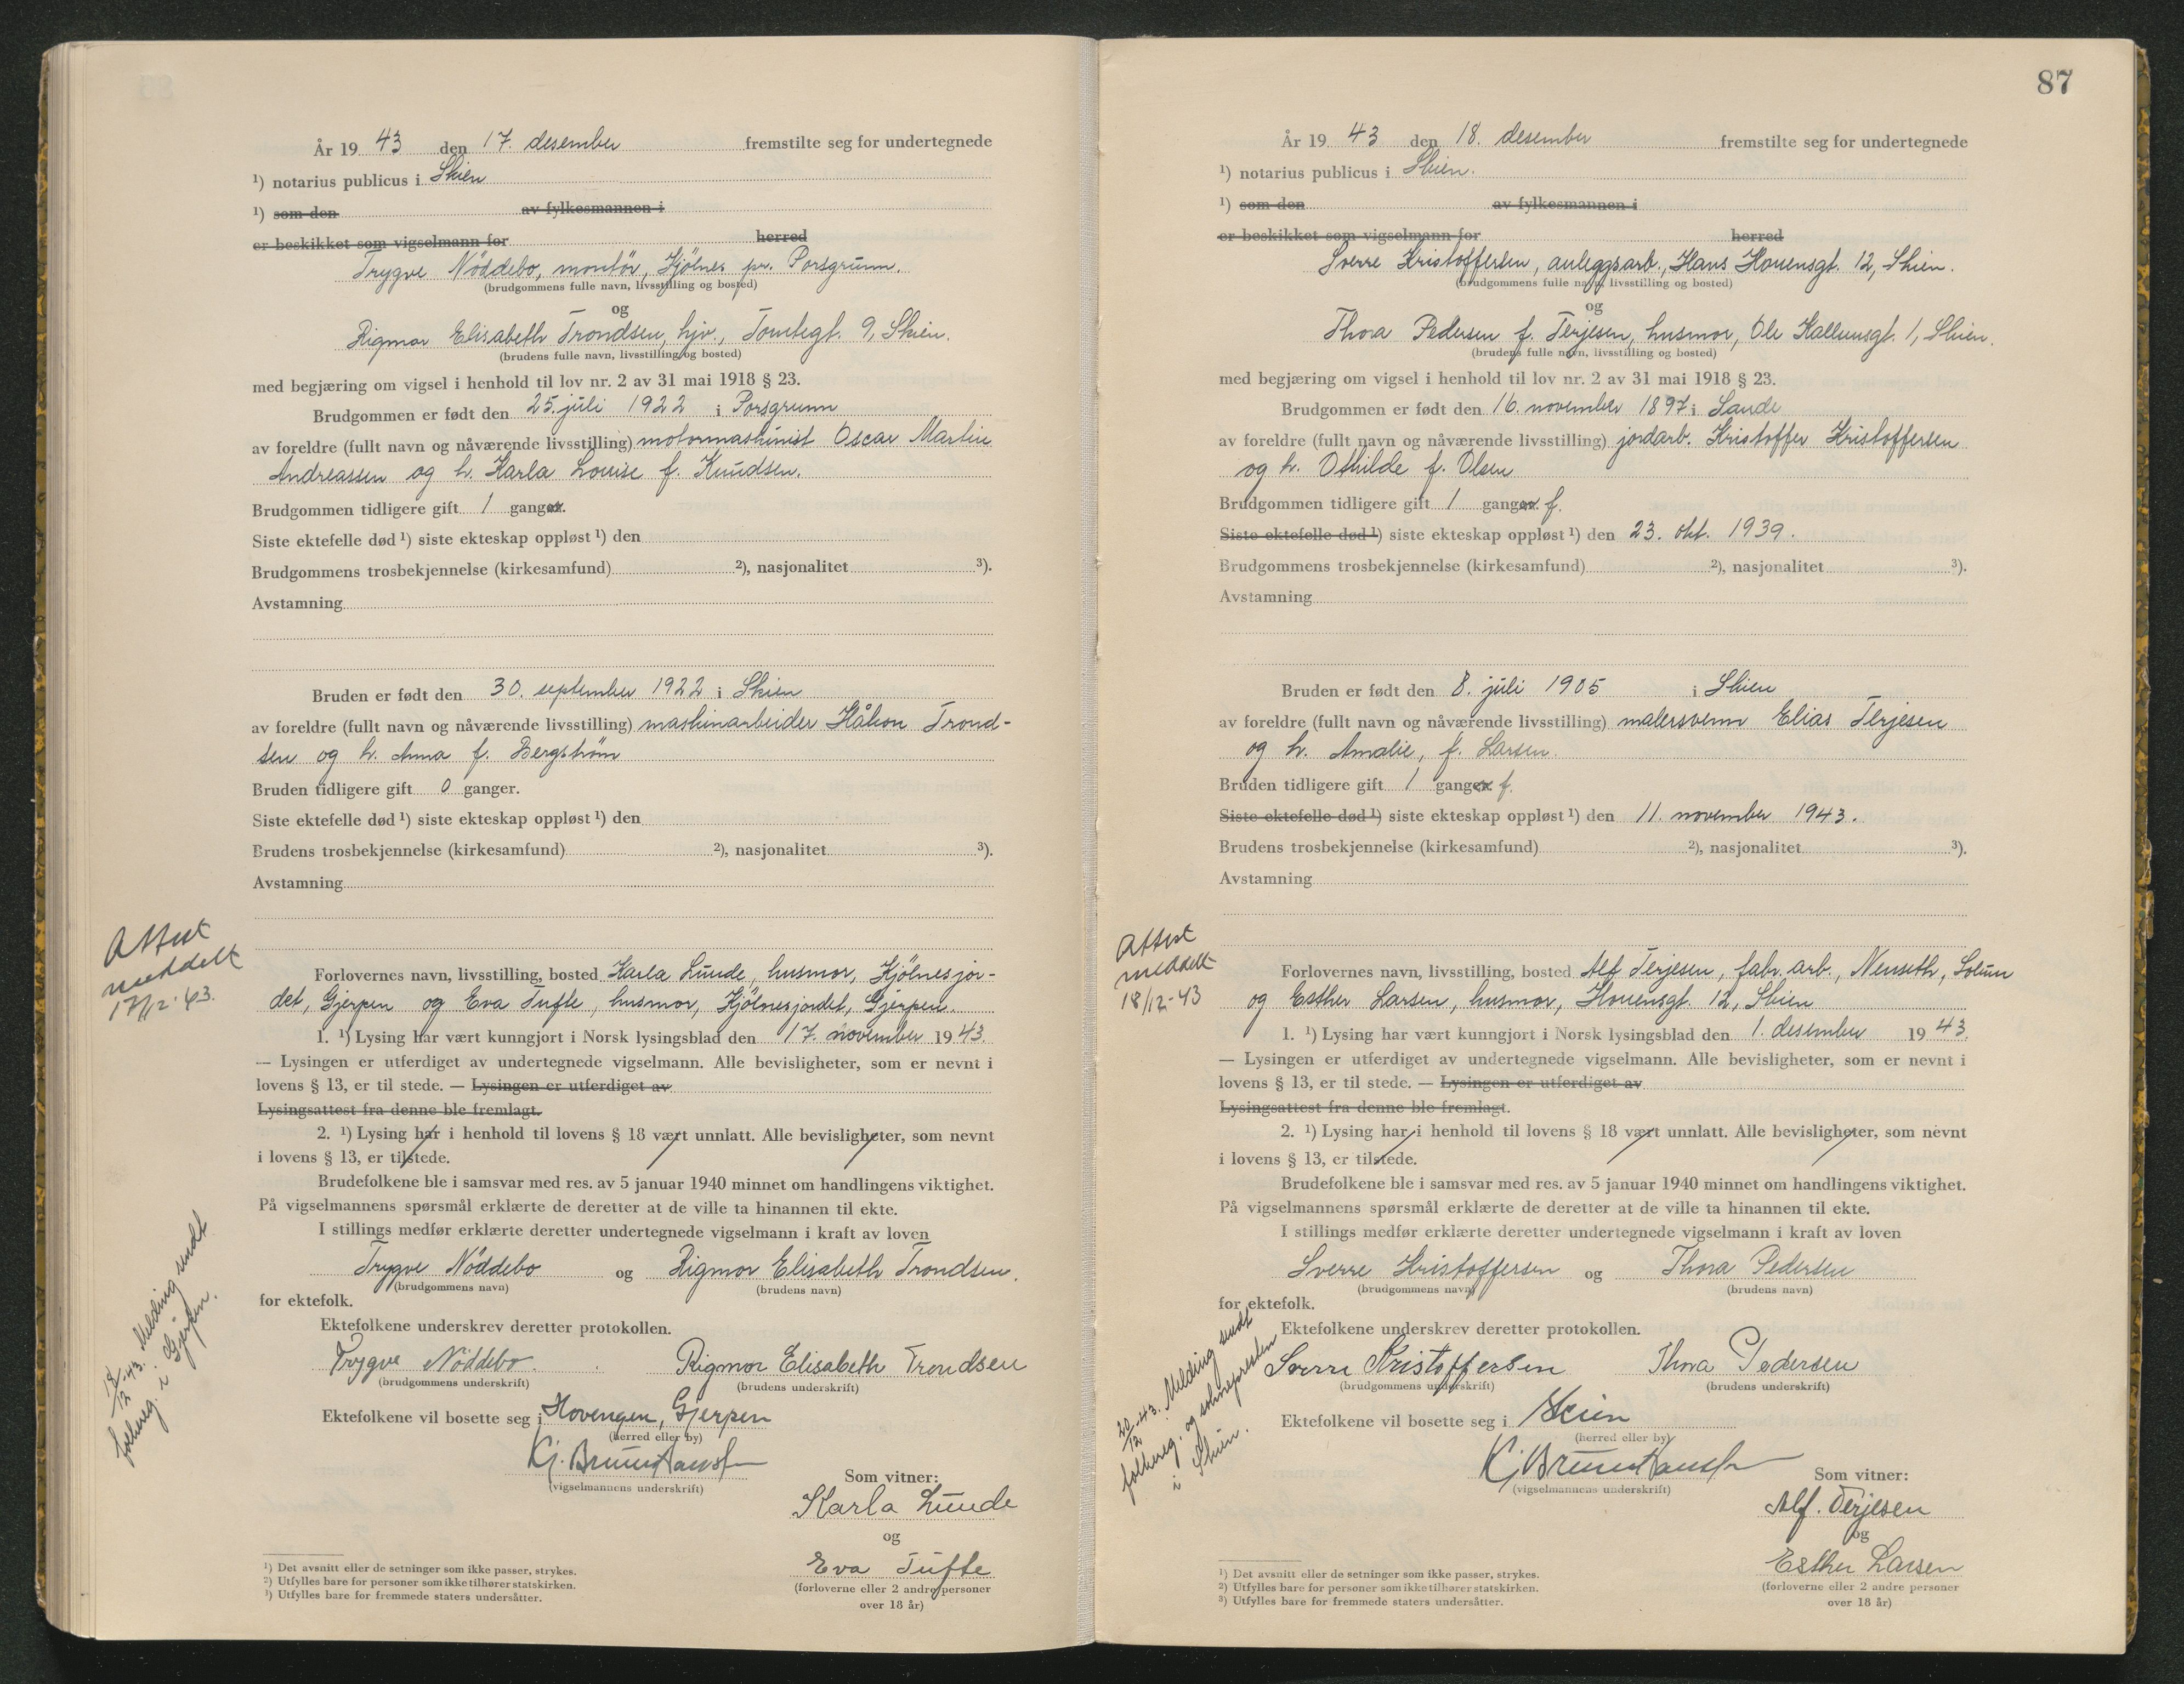 År 19 43 den 17. desember fremstilte seg for undertegnede
¹) notarius publicus i Skien
¹) som den av fylkesmannen i
er beskikket som vigselmann for herred
Trygve Nöddebo, montör, Kjölnes pr. Porsgrunn.
(brudgommens fulle navn, livsstilling og bosted)
og
Rigmor Elisabeth Trondsen, hjv., Tomtegt. 9, Skien.
(brudens fulle navn, livsstilling og bosted)
med begjæring om vigsel i henhold til lov nr. 2 av 31 mai 1918 § 23.
Brudgommen er født den 25. juli 1922 i Porsgrunn
av foreldre (fullt navn og nåværende livsstilling) motormaskinist Oscar Martin
Andreassen og h. Karla Louise f. Knudsen.
Brudgommen tidligere gift 1 ganger.
Siste ektefelle død ¹) siste ekteskap oppløst ¹) den
Brudgommens trosbekjennelse (kirkesamfund) ²), nasjonalitet ³).
Avstamning
Bruden er født den 30. september 1922 i Skien
av foreldre (fullt navn og nåværende livsstilling) maskinarbeider Håkon Trond-
sen og h. Anna f. Bergström
Bruden tidligere gift 0 ganger.
Siste ektefelle død ¹) siste ekteskap oppløst ¹) den
Brudens trosbekjennelse (kirkesamfund) ²), nasjonalitet ³).
Avstamning
Attest
meddelt
17/12-43.
Forlovernes navn, livsstilling, bosted Karla Lunde, husmor, Kjölnesjor-
det, Gjerpen og Eva Tufte, husmor, Kjölnesjordet, Gjerpen.
1. ¹) Lysing har vært kunngjort i Norsk lysingsblad den 17. november 19 43.
— Lysingen er utferdiget av undertegnede vigselmann. Alle bevisligheter, som er nevnt i
lovens § 13, er til stede. — Lysingen er utferdiget av
Lysingsattest fra denne ble fremlagt.
2. ¹) Lysing har i henhold til lovens § 18 vært unnlatt. Alle bevisligheter, som nevnt
i lovens § 13, er tilstede.
Brudefolkene ble i samsvar med res. av 5 januar 1940 minnet om handlingens viktighet.
På vigselmannens spørsmål erklærte de deretter at de ville ta hinannen til ekte.
I stillings medfør erklærte deretter undertegnede vigselmann i kraft av loven
Trygve Nöddebo og Rigmor Elisabeth Trondsen.
(brudgommens navn) (brudens navn)
for ektefolk.
Ektefolkene underskrev deretter protokollen.
Trygve Nöddebo. Rigmor Elisabeth Trondsen
(brudgommens underskrift) (brudens underskrift)
18/12-43. Melding sendt
folkereg. i Gjerpen.
Ektefolkene vil bosette seg i Hovengen, Gjerpen
(herred eller by)
Kj. Bruun Hanssen
(vigselmannens underskrift)
Som vitner:
Karla Lunde
og
Eva Tufte
(forloverne eller 2 andre personer
over 18 år)
¹) Det avsnitt eller de setninger som ikke passer, strykes.
²) Utfylles bare for personer som ikke tilhører statskirken.
³) Utfylles bare for fremmede staters undersåtter.
87
År 19 43 den 18. desember fremstilte seg for undertegnede
¹) notarius publicus i Skien.
¹) som den av fylkesmannen i
er beskikket som vigselmann for herred
Sverre Kristoffersen, anleggsarb., Hans Houensgt. 12, Skien.
(brudgommens fulle navn, livsstilling og bosted)
og
Thora Pedersen f. Terjesen, husmor, Ole Kallumsgt. 1, Skien.
(brudens fulle navn, livsstilling og bosted)
med begjæring om vigsel i henhold til lov nr. 2 av 31 mai 1918 § 23.
Brudgommen er født den 16. november 1897 i Sande
av foreldre (fullt navn og nåværende livsstilling) jordarb. Kristoffer Kristoffersen
og h. Othilde f. Olsen
Brudgommen tidligere gift 1 ganger. f.
Siste ektefelle død ¹) siste ekteskap oppløst ¹) den 23. okt. 1939.
Brudgommens trosbekjennelse (kirkesamfund) ²), nasjonalitet ³).
Avstamning
Bruden er født den 8. juli 1905 i Skien
av foreldre (fullt navn og nåværende livsstilling) malersvenn Elias Terjesen
og h. Amalie, f. Larsen.
Bruden tidligere gift 1 ganger. f.
Siste ektefelle død ¹) siste ekteskap oppløst ¹) den 11. november 1943.
Brudens trosbekjennelse (kirkesamfund) ²), nasjonalitet ³).
Avstamning
Attest
meddelt
18/12-43
Forlovernes navn, livsstilling, bosted Alf Terjesen, fabr. arb., Nenseth, Solum
og Esther Larsen, husmor, Houensgt. 12, Skien
1. ¹) Lysing har vært kunngjort i Norsk lysingsblad den 1. desember 19 43.
— Lysingen er utferdiget av undertegnede vigselmann. Alle bevisligheter, som er nevnt i
lovens § 13, er til stede. — Lysingen er utferdiget av
Lysingsattest fra denne ble fremlagt.
2. ¹) Lysing har i henhold til lovens § 18 vært unnlatt. Alle bevisligheter, som nevnt
i lovens § 13, er tilstede.
Brudefolkene ble i samsvar med res. av 5 januar 1940 minnet om handlingens viktighet.
På vigselmannens spørsmål erklærte de deretter at de ville ta hinannen til ekte.
I stillings medfør erklærte deretter undertegnede vigselmann i kraft av loven
Sverre Kristoffersen og Thora Pedersen
(brudgommens navn) (brudens navn)
for ektefolk.
Ektefolkene underskrev deretter protokollen.
Sverre Kristoffersen Thora Pedersen
(brudgommens underskrift) (brudens underskrift)
20/12-43. Melding sendt
folkereg. og soknepresten
i Skien.
Ektefolkene vil bosette seg i Skien
(herred eller by)
Kj Bruun Hanssen
(vigselmannens underskrift)
Som vitner:
Alf. Terjesen
og
Esther Larsen
(forloverne eller 2 andre personer
over 18 år)
¹) Det avsnitt eller de setninger som ikke passer, strykes.
²) Utfylles bare for personer som ikke tilhører statskirken.
³) Utfylles bare for fremmede staters undersåtter.